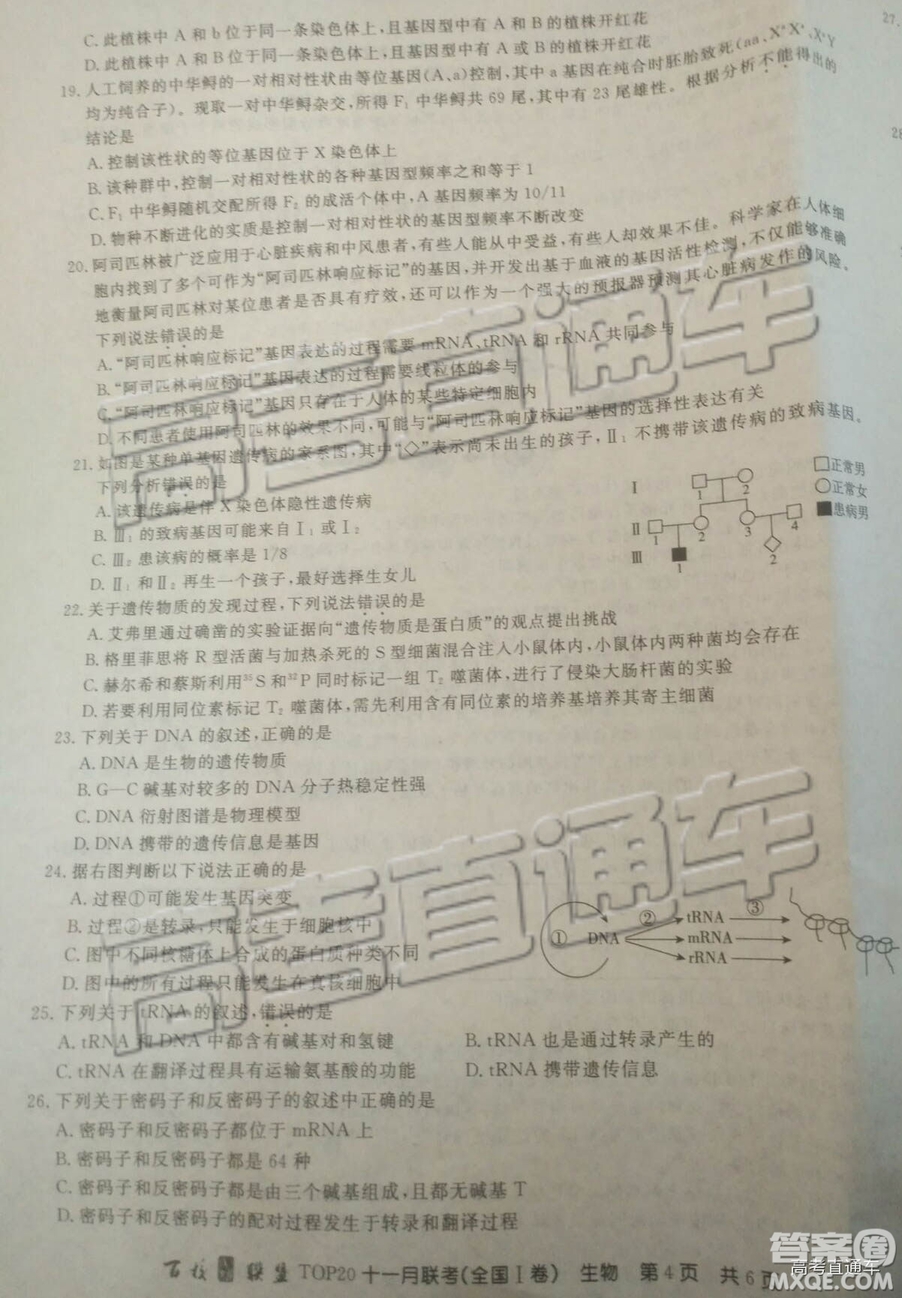 C. 此植株中 A 和 b 位于同一条染色体上,且基因型中有 A 的植株开红花
D. 此植株中 A 和 B 位于同一条染色体上,且基因型中有 A 或 B 的植株开红花
19. 人工饲养的中华鲟的一对相对性状由等位基因(A、a)控制,其中 a 基因在纯合时胚胎致死(aa、XᵃXᵃ、XᵃY
均为纯合子)。现取一对中华鲟杂交,所得 F₁ 中华鲟共 69 尾,其中有 23 尾雄性。根据分析不能得出的
结论是
A. 控制该性状的等位基因位于 X 染色体上
B. 该种群中,控制一对相对性状的各种基因型频率之和等于 1
C. F₁ 中华鲟随机交配所得 F₂ 的成活个体中,A 基因频率为 10/11
D. 物种不断进化的实质是控制一对相对性状的基因型频率不断改变
20. 阿司匹林被广泛应用于心脏疾病和中风患者,有些人能从中受益,有些人却效果不佳。科学家在人体细
胞内找到了多个可作为“阿司匹林响应标记”的基因,并开发出基于血液的基因活性检测,不仅能够准确
地衡量阿司匹林对某位患者是否具有疗效,还可以作为一个强大的预报器预测其心脏病发作的风险。
下列说法错误的是
A. “阿司匹林响应标记”基因表达的过程需要 mRNA、tRNA 和 rRNA 共同参与
B. “阿司匹林响应标记”基因表达的过程需要线粒体的参与
C. “阿司匹林响应标记”基因只存在于人体的某些特定细胞内
D. 不同患者使用阿司匹林的效果不同,可能与“阿司匹林响应标记”基因的选择性表达有关
21. 如图是某种单基因遗传病的家系图,其中“◇”表示尚未出生的孩子,Ⅱ₁ 不携带该遗传病的致病基因。
下列分析错误的是
A. 该遗传病是伴 X 染色体隐性遗传病
B. Ⅲ₁ 的致病基因可能来自Ⅰ₁ 或Ⅰ₂
C. Ⅲ₂ 患该病的概率是 1/8
D. Ⅱ₁ 和Ⅱ₂ 再生一个孩子,最好选择生女儿
Ⅰ 1 2
Ⅱ 1 2 3 4
Ⅲ 1 2
□正常男
○正常女
■患病男
22. 关于遗传物质的发现过程,下列说法错误的是
A. 艾弗里通过确凿的实验证据向“遗传物质是蛋白质”的观点提出挑战
B. 格里菲思将 R 型活菌与加热杀死的 S 型细菌混合注入小鼠体内,小鼠体内两种菌均会存在
C. 赫尔希和蔡斯利用³⁵S 和³²P 同时标记一组 T₂ 噬菌体,进行了侵染大肠杆菌的实验
D. 若要利用同位素标记 T₂ 噬菌体,需先利用含有同位素的培养基培养其寄主细菌
23. 下列关于 DNA 的叙述,正确的是
A. DNA 是生物的遗传物质
B. G—C 碱基对较多的 DNA 分子热稳定性强
C. DNA 衍射图谱是物理模型
D. DNA 携带的遗传信息是基因
24. 据右图判断以下说法正确的是
A. 过程①可能发生基因突变
B. 过程②是转录,只能发生于细胞核中
C. 图中不同核糖体上合成的蛋白质种类不同
D. 图中的所有过程只能发生在真核细胞中
① DNA ② tRNA ③
mRNA
rRNA
25. 下列关于 tRNA 的叙述,错误的是
A. tRNA 和 DNA 中都含有碱基对和氢键 B. tRNA 也是通过转录产生的
C. tRNA 在翻译过程具有运输氨基酸的功能 D. tRNA 能携带遗传信息
26. 下列关于密码子和反密码子的叙述中正确的是
A. 密码子和反密码子都位于 mRNA 上
B. 密码子和反密码子都是 64 种
C. 密码子和反密码子都是由三个碱基组成,且都无碱基 T
D. 密码子和反密码子的配对过程发生于转录和翻译过程
百校联盟 TOP20 十一月联考(全国Ⅰ卷) 生物 第 4 页 共 6 页
27.
28
高考直通车
高考直通车
答案圈
高考直通车
MXQE.COM